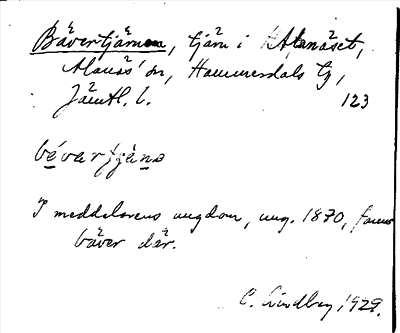 Bävertjärnen, tjärn i Alanäset,
Alanäs' sn, Hammerdals tg,
Jämtl. l. 123
bévartjäna
I meddelarens ungdom, ung. 1870, fanns
bäver där.
C. Lindberg 1929.